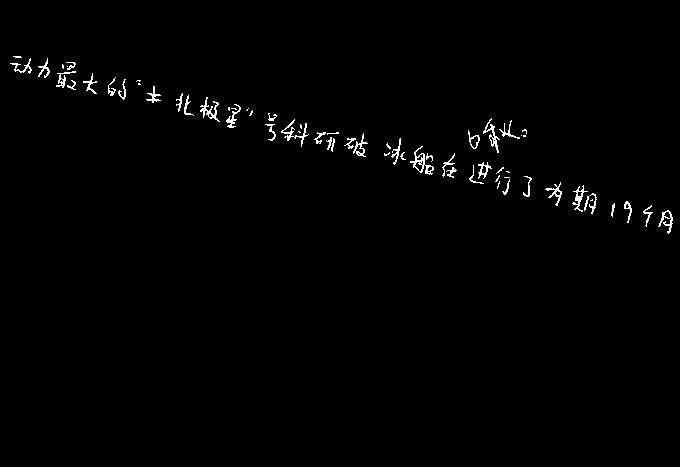 动力最大的“北极星”号科研破冰船在进行了为期19个月